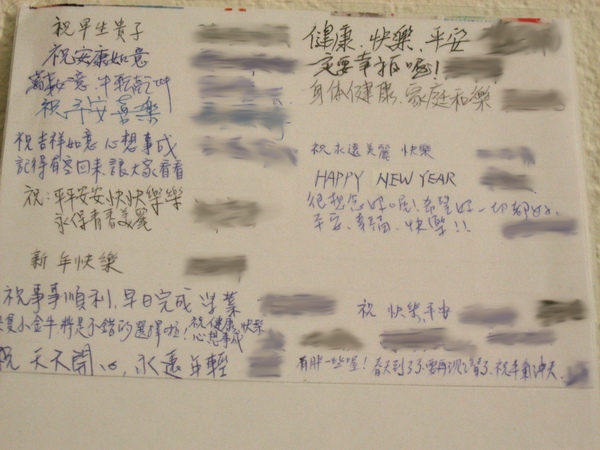 祝早生貴子
祝安康如意
萬事如意.牛轉乾坤
祝平安喜樂
祝吉祥如意心想事成
記得有空回來讓大家看看
祝:平平安安快快樂樂
永保青春美麗
新年快樂
祝事事順利,早日完成學業
小金牛將是不錯的選擇啦,祝健康快樂
心想事成
祝天天開心,永遠年輕
健康、快樂、平安
一定要幸福喔!
身体健康、家庭和樂
祝永遠美麗 快樂
HAPPY NEW YEAR
很想您好喔!希望妳一切都好.
平安、幸福、快樂!!
祝 快樂平安
有胖一些喔!春天到了不要再